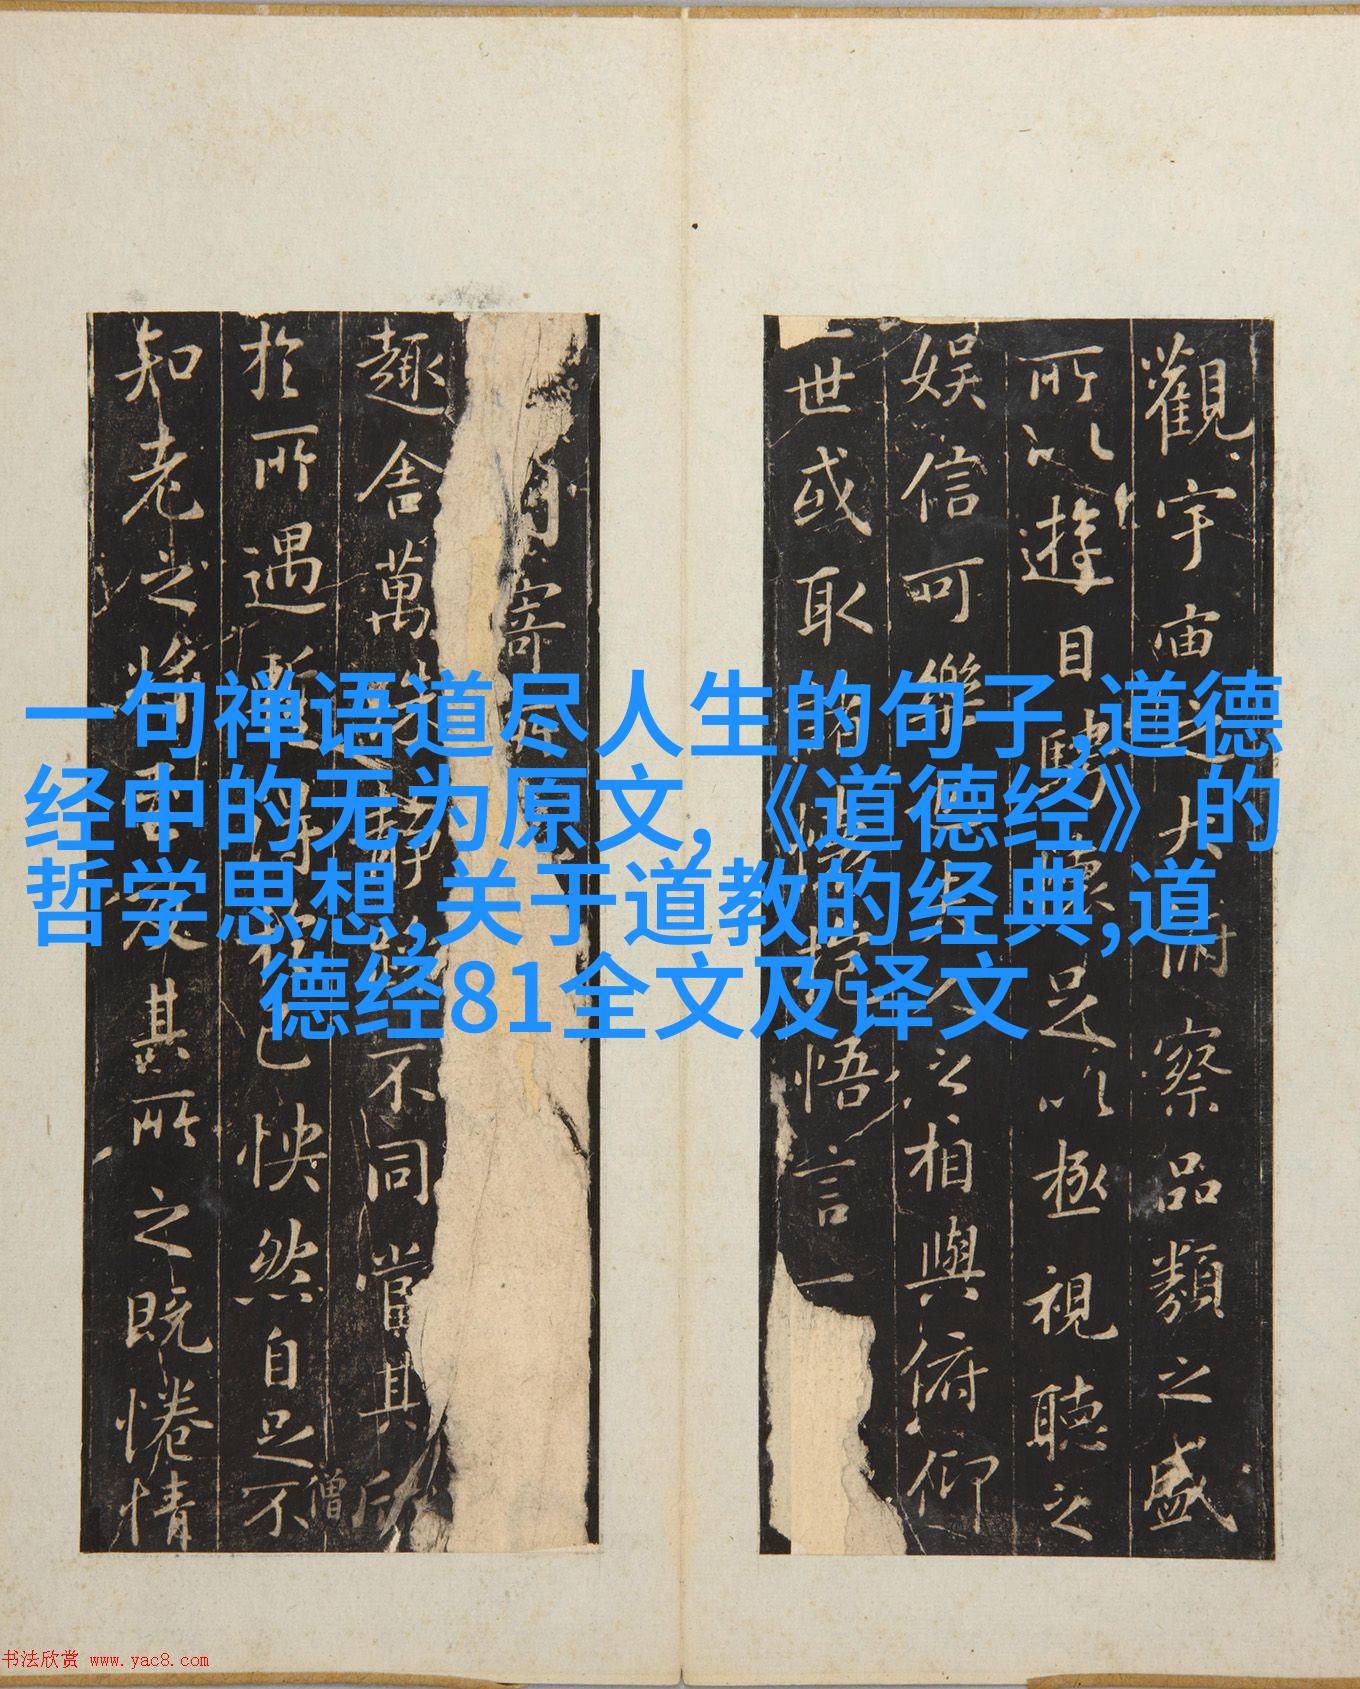 一句禅语道尽人生的句子,道德
经中的无为原文,《道德经》的
哲学思想,关于道教的经典,道
德经81全文及译文
觀宇宙之大俯察品類之盛
所以遊目騁懷足以極視聽之
娛信可樂也夫人之相與俯仰
一世或取諸懷抱悟言一
寄
趣舍萬殊靜躁不同當其欣
於所遇暫得於己怏然自足不
僧
知老之將至及其所之既惓情
书法欣赏 www.yac8.com